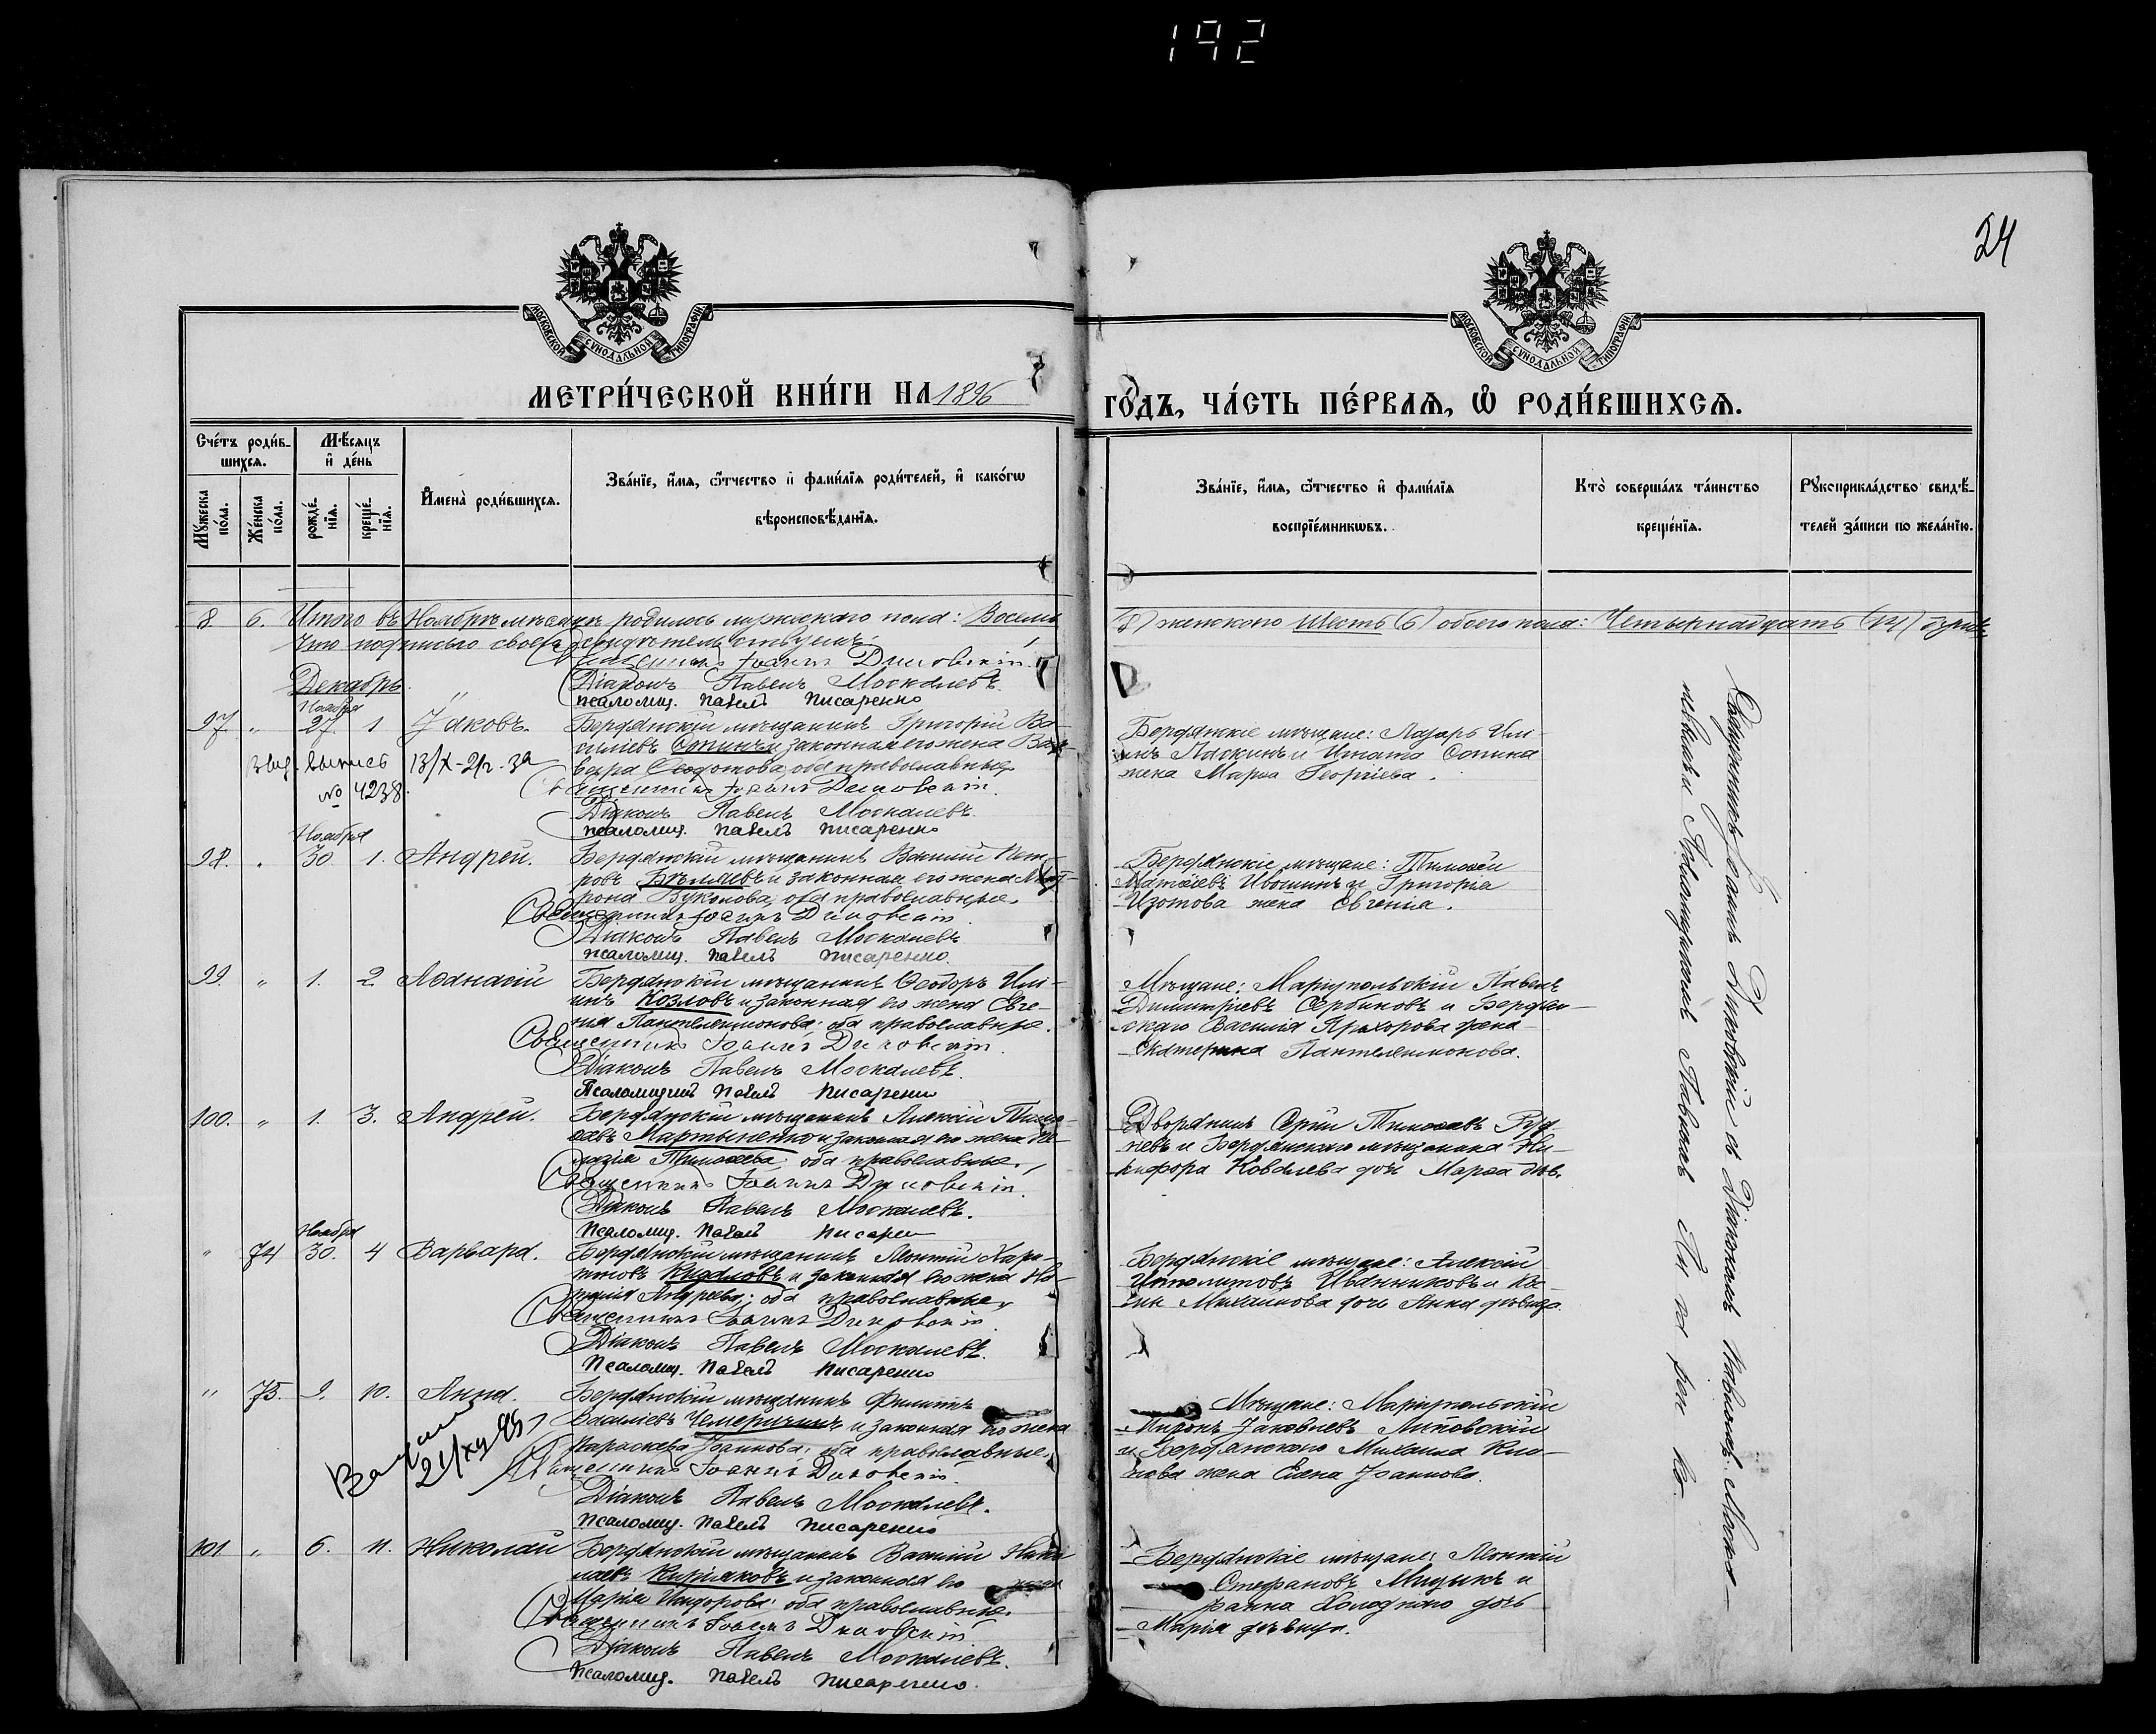 192
24
МОСКОВСКОЙ СУНОДАЛЬНОЙ ТИПОГРАФІИ
МОСКОВСКОЙ СУНОДАЛЬНОЙ ТИПОГРАФІИ
МЕТРИ́ЧЕСКОЙ КНИ́ГИ НА 1896
ГО́ДЪ, ЧА́СТЬ ПЕ́РВАѦ, Ѽ РОДИ́ВШИХСѦ.
Сче́тъ роди́в-
шихсѧ.
Мꙋжеска по́ла.
Же́нска по́ла.
Мѣ́сѧцъ
и҆ де́нь
рожде́-нїѧ.
креще́-нїѧ.
И҆мена̀ роди́вшихсѧ.
Зва́нїе, и҆́мѧ, ѻ҆́тчество и҆ фами́лїѧ роди́телей, и҆ како́гѡ
вѣроисповѣ́данїѧ.
Зва́нїе, и҆́мѧ, ѻ҆́тчество и҆ фами́лїѧ
воспрїе́мникѡвъ.
Кто̀ соверша́лъ та́инство
креще́нїѧ.
Рꙋкоприкла́дство свидѣ́-
телей за́писи по жела́нїю.
8. 6. Итого въ Ноябрѣ мѣсяцѣ родилось мужескаго пола: Восемь
(8) женскаго Шесть (6) обоего пола: Четырнадцать (14)
Что подписью своею свидѣтельствуемъ:
Священникъ Іоаннъ Дуновскій.
Діаконъ Павелъ Москалевъ.
псаломщ. Павелъ Писаренко
Декабрь.
Ноября
97. " 27. 1 Іаковъ. Бердянскій мѣщанинъ Григорій Ва-
силіевъ и законная его жена Вар-
вара Ѳедотова, оба православные.
Священникъ Іоаннъ Дуновскій.
Діаконъ Павелъ Москалевъ.
псаломщ. Павелъ Писаренко
выд. выпись 13/X-21г. за
№ 4238.
Бердянскіе мѣщане: Лазарь Иль-
инъ и Игната Сопина
жена Марѳа Георгіева.
Ноября
98. " 30. 1. Андрей. Бердянскій мѣщанинъ Василій Пет-
ровъ Бѣляевъ и законная его жена Мат-
рона оба православные.
Священникъ Іоаннъ Дуновскій.
Діаконъ Павелъ Москалевъ
псаломщ. Павелъ Писаренко.
Бердянскіе мѣщане: Тимоѳей
Матѳіевъ Ивошинъ и Григорія
Изотова жена Евгенія.
99. " 1. 2. Аѳанасій Бердянскій мѣщанинъ Ѳеодоръ Иль-
инъ Козловъ и законная его жена Евге-
нія Пантелеимонова: оба православные.
Священникъ Іоаннъ Дуновскій.
Діаконъ Павелъ Москалевъ.
Псаломщикъ Павелъ Писаренко
Мѣщане: Маріупольскій Павелъ
Димитріевъ Сербиновъ и Бердян-
скаго Василія Прохорова жена
Екатерина Пантелеимонова.
100. " 1. 3. Андрей. Бердянскій мѣщанинъ Алексій Тимо-
ѳеевъ Мартыненко и законная его жена
Тимоѳеева, оба православные.
Священникъ Іоаннъ Дуновскій.
Діаконъ Павелъ Москалевъ.
Псаломщ. Павелъ Писаренко
Дворянинъ Сергій Тимоѳеевъ Руд-
невъ и Бердянскаго мѣщанина Ни-
кифора Ковалева дочь Марѳа дѣв.
Ноября
" 74 30. 4 Варвара. Бердянскій мѣщанинъ Леонтій Хари-
тоновъ и законная его жена
Андреева; оба православные.
Священникъ Іоаннъ Дуновскій
Діаконъ Павелъ Москалевъ.
Псаломщ. Павелъ Писаренко
Бердянскіе мѣщане: Алексій
Ипполитовъ Иванниковъ и
Михайлова дочь Анна дѣвица.
" 75. 9. 10. Анна. Бердянскій мѣщанинъ Филиппъ
Василіевъ и законная его жена
Параскева Іоаннова; оба православные.
Священникъ Іоаннъ Дуновскій.
Діаконъ Павелъ Москалевъ.
Псаломщ. Павелъ Писаренко
Мѣщане: Маріупольскій
Миронъ Іаковлевъ Липовскій
и Бердянскаго Михаила
жена Елена Іоаннова.
101 " 6. 11. Николай Бердянскій мѣщанинъ Василій Нико-
лаевъ Киріяковъ и законная его жена
Марія Исидорова: оба православные.
Священникъ Іоаннъ Дуновскій
Діаконъ Павелъ Москалевъ.
Псаломщ. Павелъ Писаренко.
Бердянскіе мѣщане: Леонтій
Стефановъ и
дочь
Марія дѣвица.
Священникъ Іоаннъ Дуновскій съ Діакономъ Павломъ Москал-
евымъ и Псаломщикомъ Павломъ Пи са рен ко.